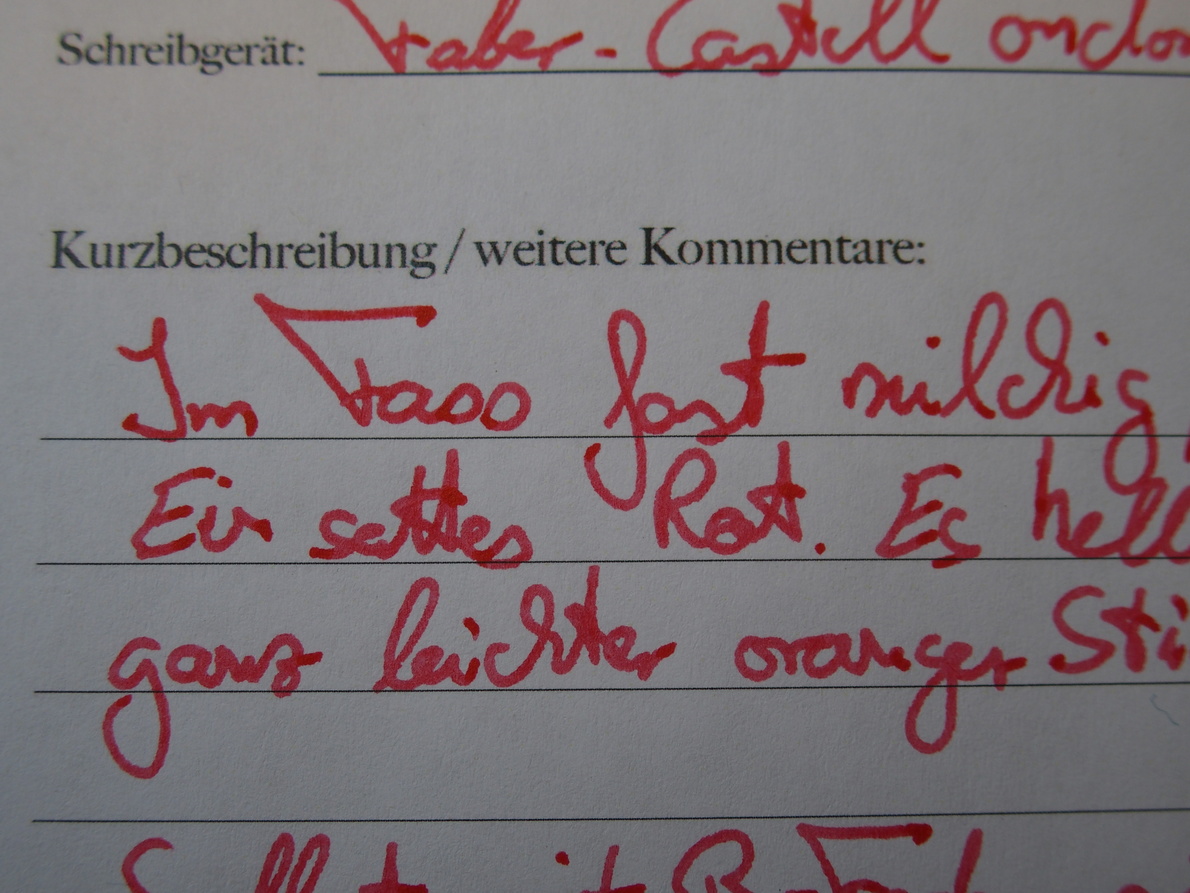 Schreibgerät: Faber-Castell ondo
Kurzbeschreibung / weitere Kommentare:
Im Fass fast milchig
Ein sattes Rot. Es hell
ganz leichter oranger Sti